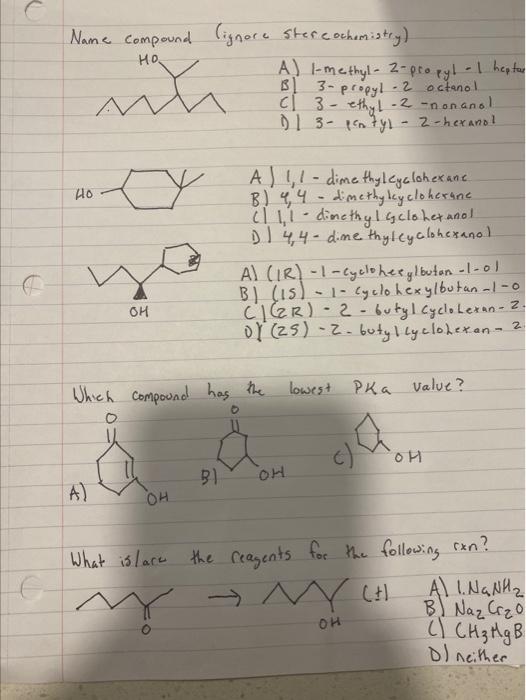 Name compound (ignore stereochemistry)
HO
A) 1-methyl-2-propyl-1 heptan
B) 3-propyl-2 octanol
C) 3-ethyl-2-nonanol
D) 3-pentyl-2-hexanol
HO
A) 1,1-dimethylcyclohexane
B) 4,4-dimethylcyclohexane
C) 1,1-dimethylcyclohexanol
D) 4,4-dimethylcyclohexanol
OH
A) (1R)-1-cyclohexylbutan-1-ol
B) (1S)-1-cyclohexylbutan-1-o
C) (2R)-2-butylcyclohexan-2-
D) (2S)-2-butylcyclohexan-2
Which compound has the lowest PKa value?
O
A)
OH
O
B)
OH
C)
OH
What is/are the reagents for the following rxn?
O
OH
(+)
A) 1.NaNH2
B) Na2Cr2O
C) CH3MgB
D) neither